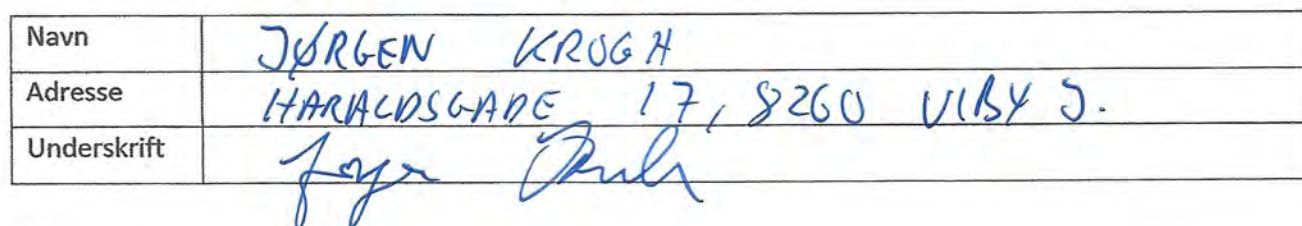 Navn JØRGEN KROGH
Adresse HARALDSGADE 17, 8260 VIBY J.
Underskrift